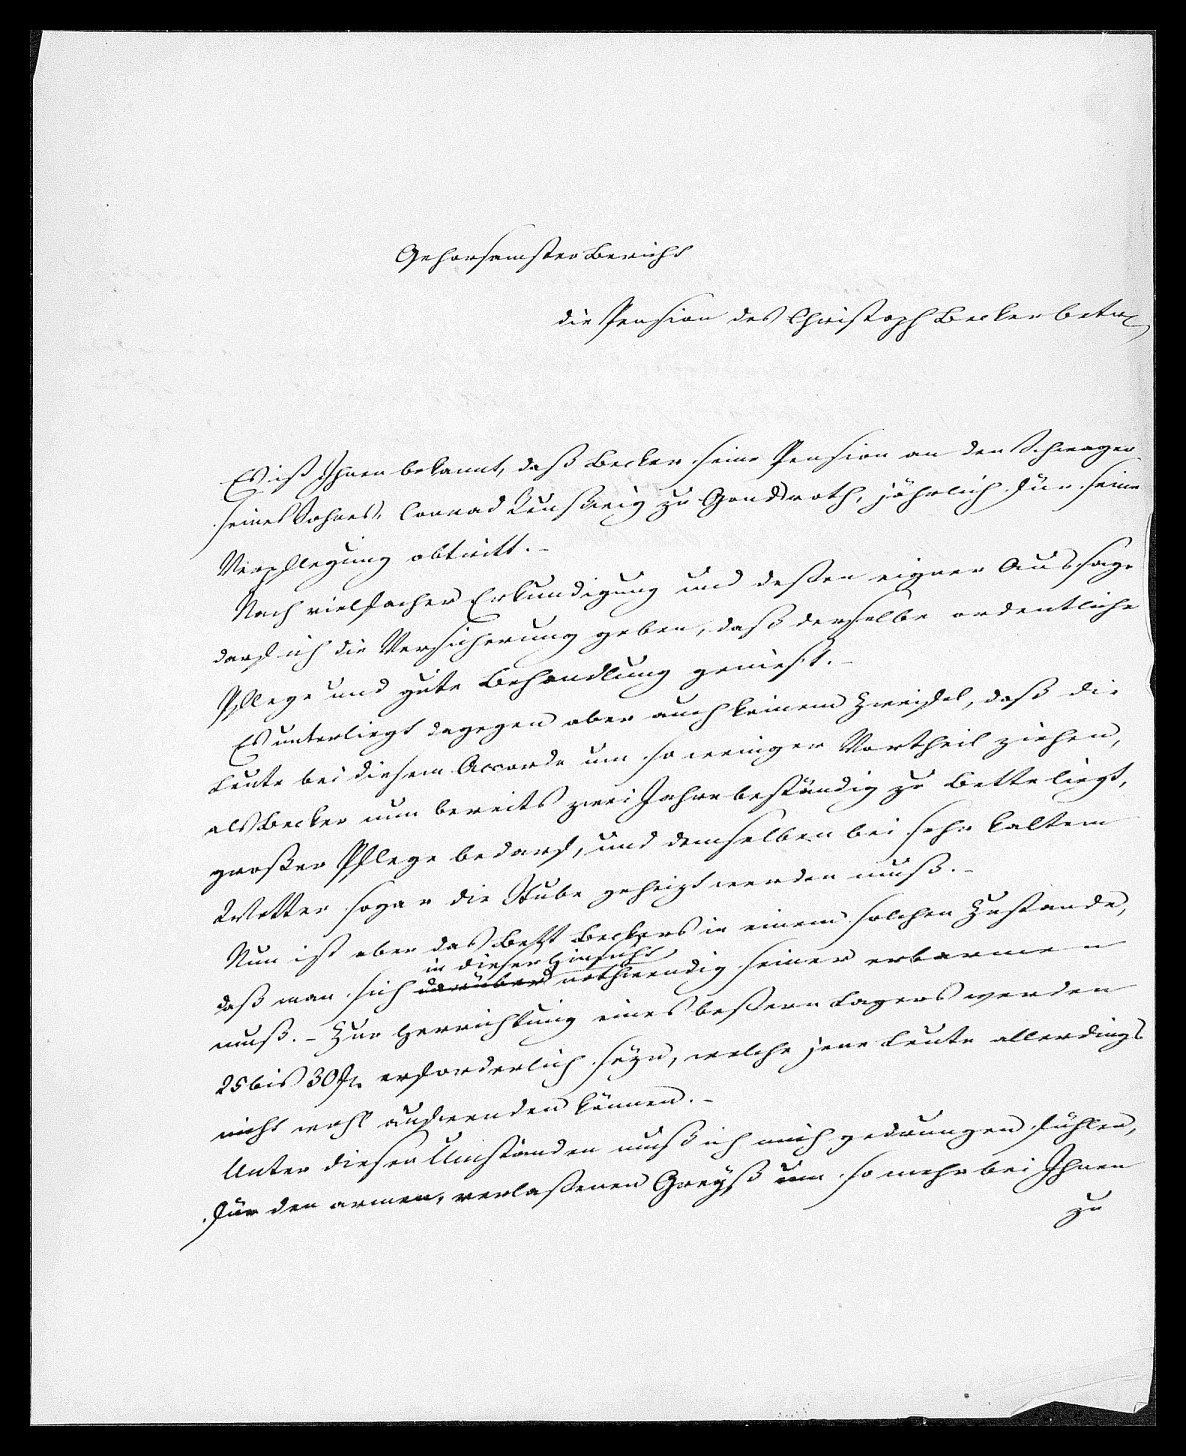 Gehorsamster Bericht
die Pension des Christoph Becker betr.
Es ist Ihnen bekannt, daß Becker seine Pension an den Schwager
seines Sohnes, Conrad zu Gondsroth, jährlich für seine
Verpflegung abtritt. -
Nach vielfacher Erkundigung und deßen eigner Aussage
darf ich die Versicherung geben, daß derselbe ordentliche
Pflege und gute Behandlung genießt. -
Es unterliegt dagegen aber auch keinem Zweifel, daß die
Leute bei diesem Accorde um so weniger Vortheil ziehen,
als Becker nun bereits zwei Jahre beständig zu Bette liegt,
großer Pflege bedarf, und demselben bei sehr kaltem
Wetter sogar die Stube geheizt werden muß. -
Nun ist aber das Bett Beckers in einem solchen Zustande,
in dieser Hinsicht
daß man sich darüber nothwendig seiner erbarmen
muß. - Zur Herrichtung eines beßern Lagers werden
25 bis 30 fl. erforderlich seyn, welche jene Leute allerdings
nicht wohl aufwenden können. -
Unter diesen Umständen muß ich mich gedrungen fühlen,
für den armen, verlaßenen Greyß um so mehr bei Ihnen
zu